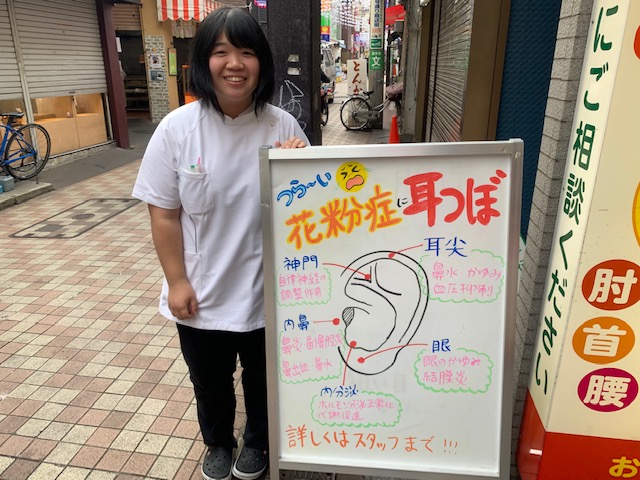 つら〜い
花粉症に耳つぼ
神門
自律神経の
調整作用
耳尖
鼻水 かゆみ
内鼻
鼻炎・副鼻腔炎
鼻出血・鼻水
眼
眼のかゆみ
結膜炎
内分泌
ホルモン分泌正常化
代謝促進
詳しくはスタッフまで!!!
にご相談ください
肘
首
腰
とんか